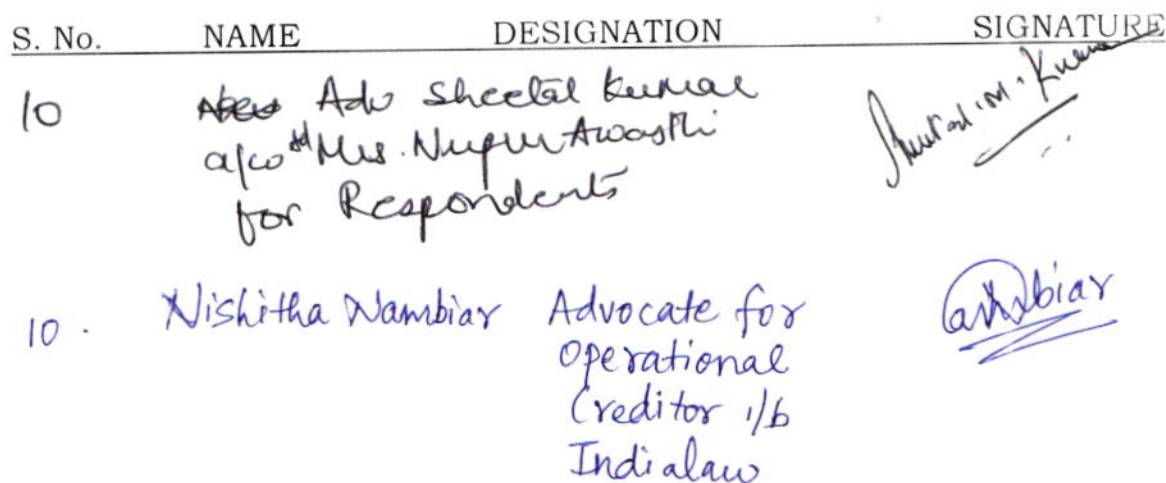 S. No. NAME DESIGNATION SIGNATURE
10 Adv Sheetal Kumar
a/w Mrs. Nupur Awasthi
for Respondents
10. Nishitha Nambiar Advocate for
Operational
Creditor i/b
Indialaw